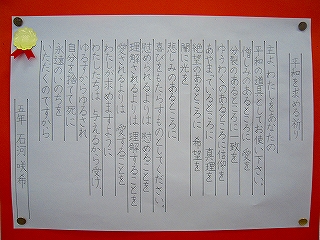 平和を求める祈り
主よ わたしをあなたの
平和の道具としてお使い下さい。
憎しみのあるところに 愛を
分裂のあるところに 一致を
ゆうわくのあるところに 信仰を
あやまちのあるところに 真理を
絶望のあるところに 希望を
闇に光を
悲しみのあるところに
喜びをもたらすものとしてください。
慰められるよりは 慰めることを
理解されるよりは 理解することを
愛されるよりは 愛することを
わたしが求めますように。
わたしたちは 与えるから受け、
ゆるすからゆるされ、
自分を捨てて死に、
永遠のいのちを
いただくのですから
五年 石河 咲希